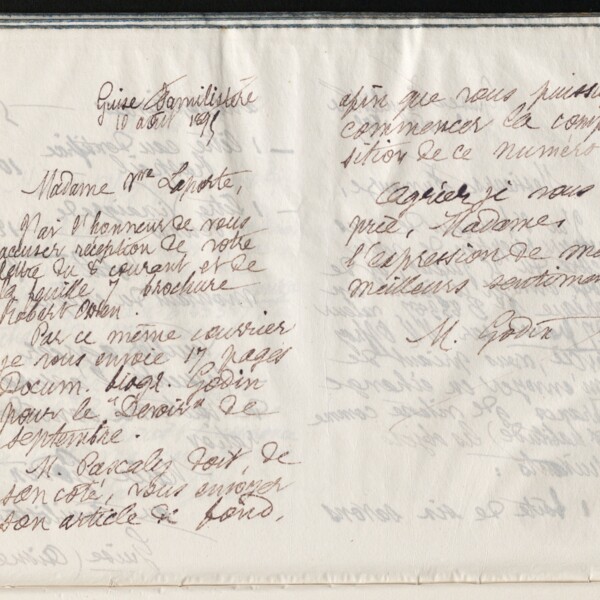 Guise Familistère
10 août 1895
Madame Vve Laporte,
J'ai l'honneur de vous
accuser réception de votre
lettre du 8 courant et de
la feuille 7 brochure
Robert Owen.
Par ce même courrier
je vous envoie 17 pages
Docum. biogr. Godin
pour le "Devoir" de
septembre.
M. Pascaley doit, de
son côté, vous envoyer
son article de fond,
afin que vous puissi
commencer la compo
sition de ce numéro
Agréer je vous
prie, Madame,
l'expression de me
meilleurs sentimen
M. Godin